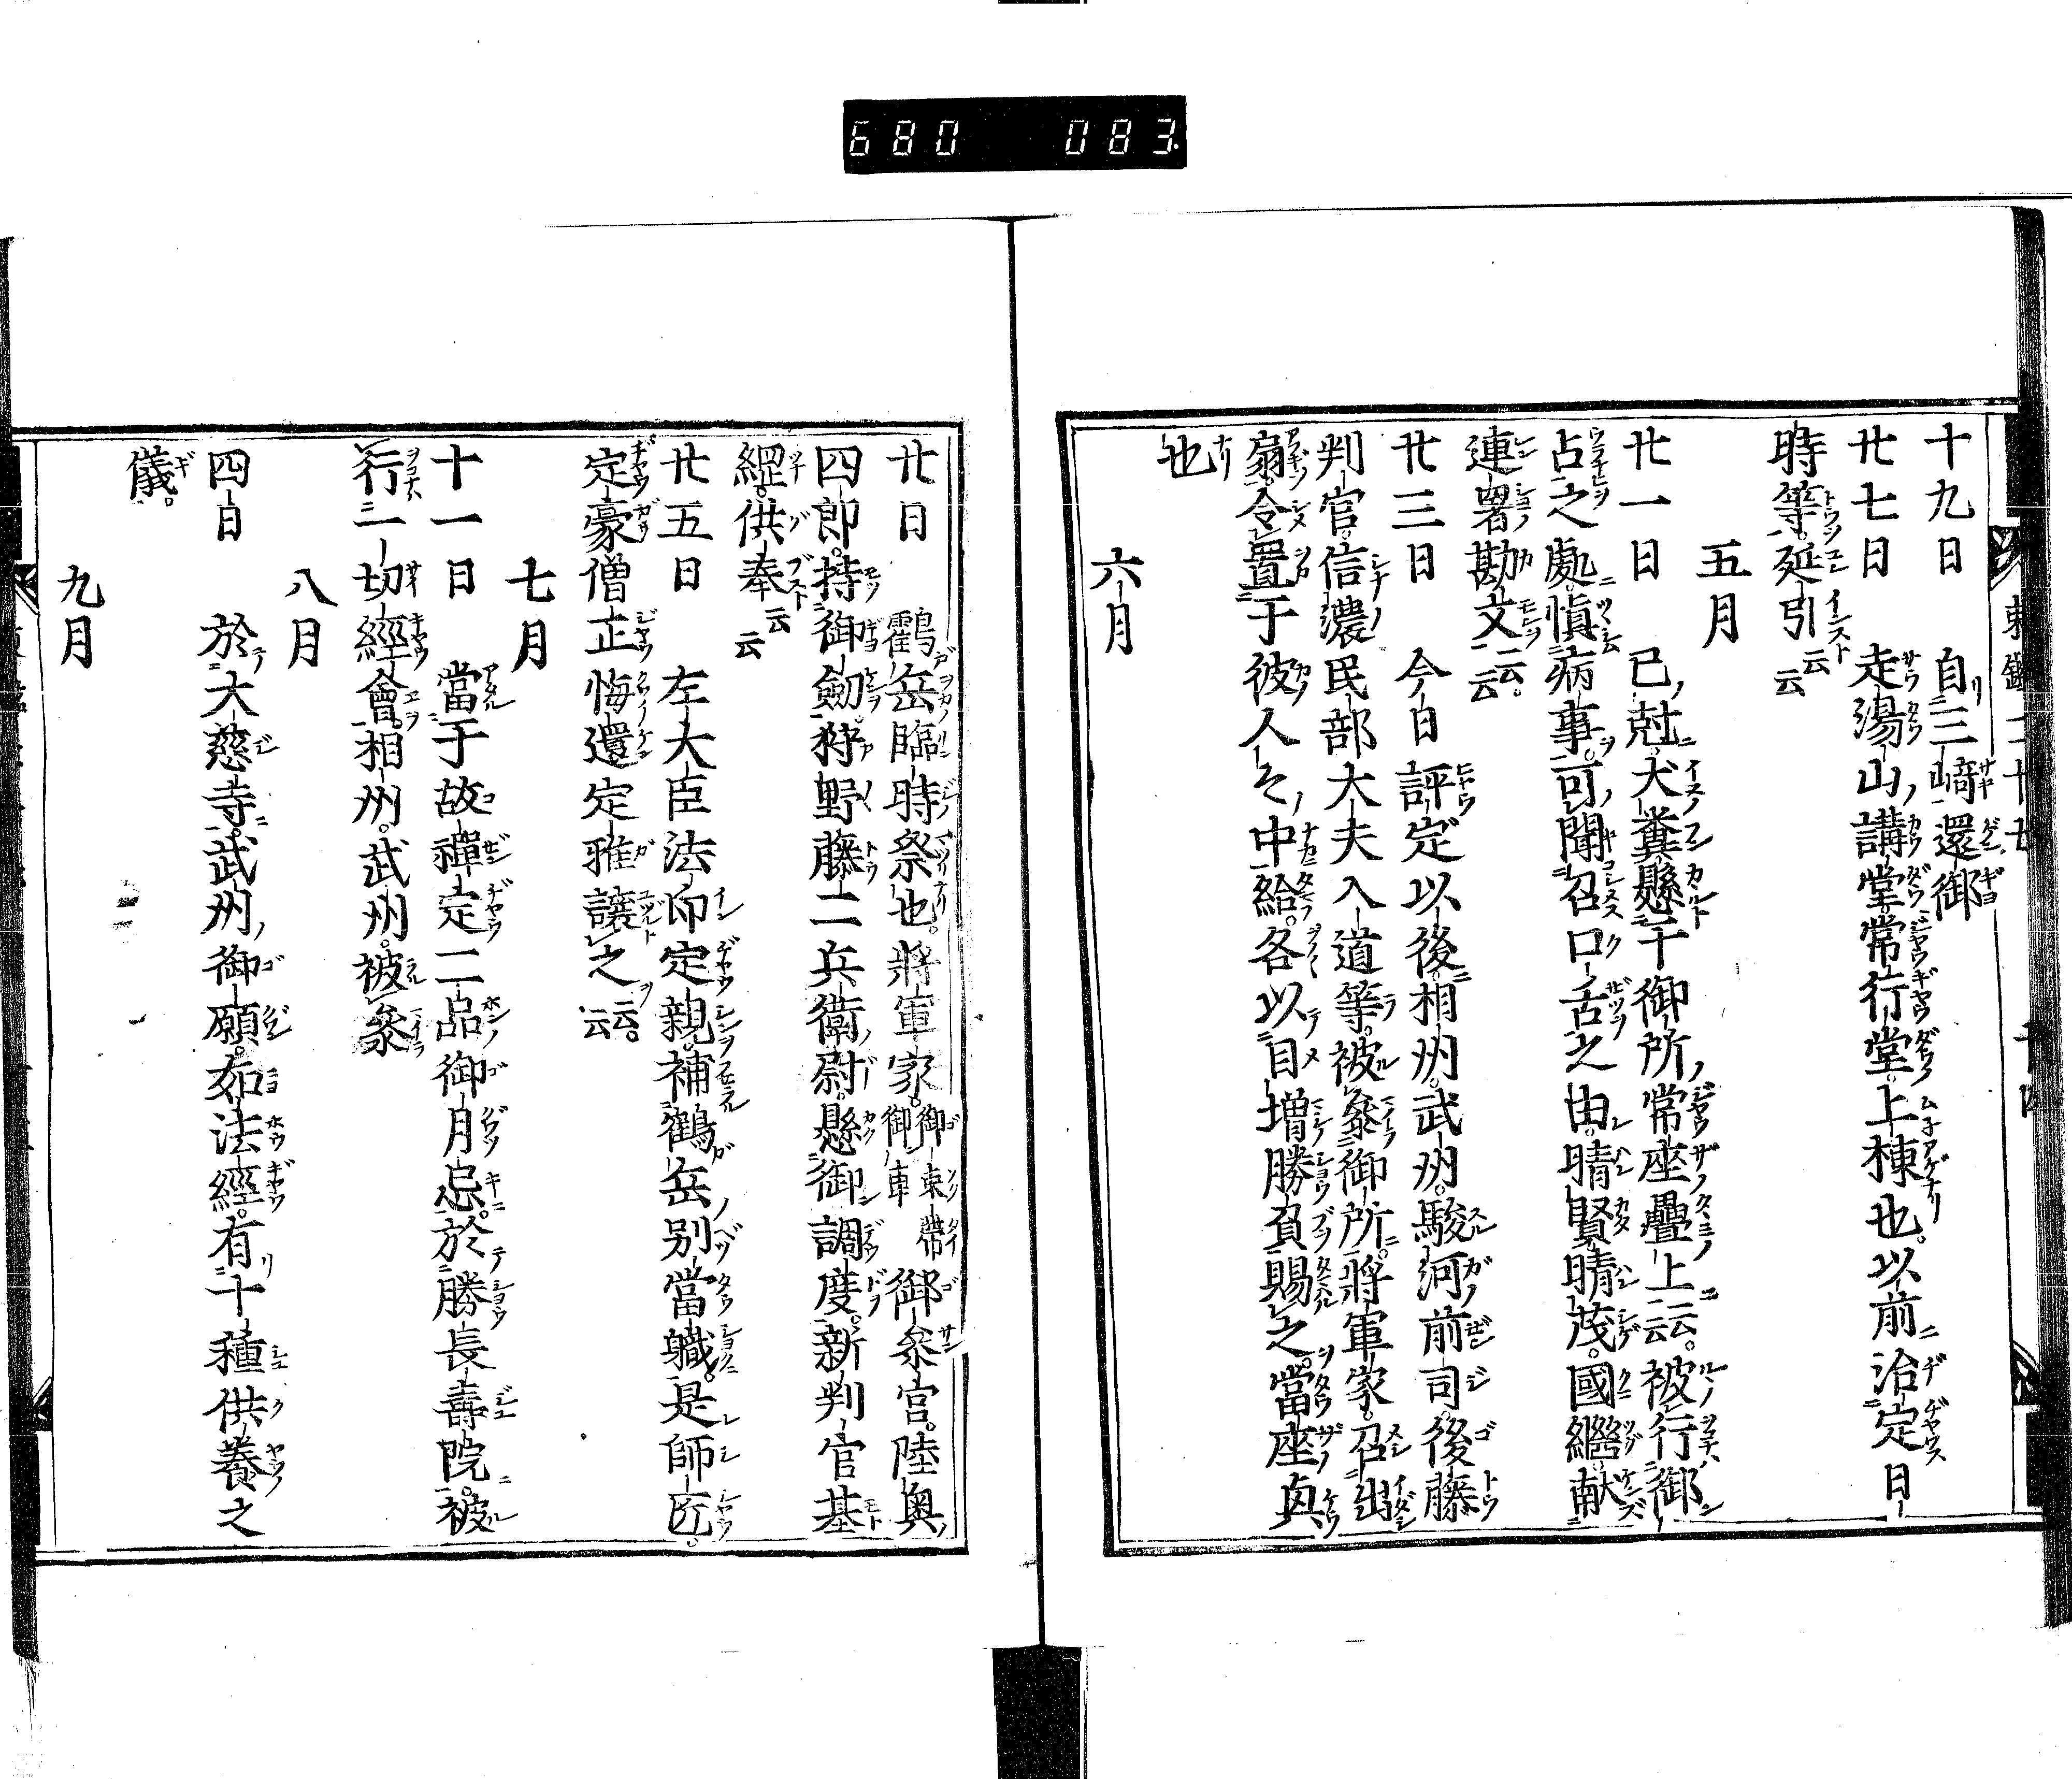 680 083
十九日 自三﨑還御
廿七日 走湯山講堂常行堂上棟也以前治定日
時等延引云云
五月
廿一日 己尅犬糞懸于御所常座疊上云云被行御
占之處愼病事可聞召口舌之由晴賢晴茂國繼献
連署勘文云云
廿三日 今日評定以後相州武州駿河前司後藤
判官信濃民部大夫入道等被參御所將軍家召出
扇令置于彼人々中給各以目増勝負賜之當座
也
六月
廿日 鶴岳臨時祭也將軍家御束帶御車御參宮陸奥
四郎持御劒狩野藤二兵衛尉懸御調度新判官基
綱供奉云云
廿五日 左大臣法印定親補鶴岳別當職是師匠
定豪僧正悔還定雅讓之云云
七月
十一日 當于故禪定二品御月忌於勝長壽院被
行一切經會相州武州被參
八月
四日 於大慈寺武州御願如法經有十種供養之
儀
九月